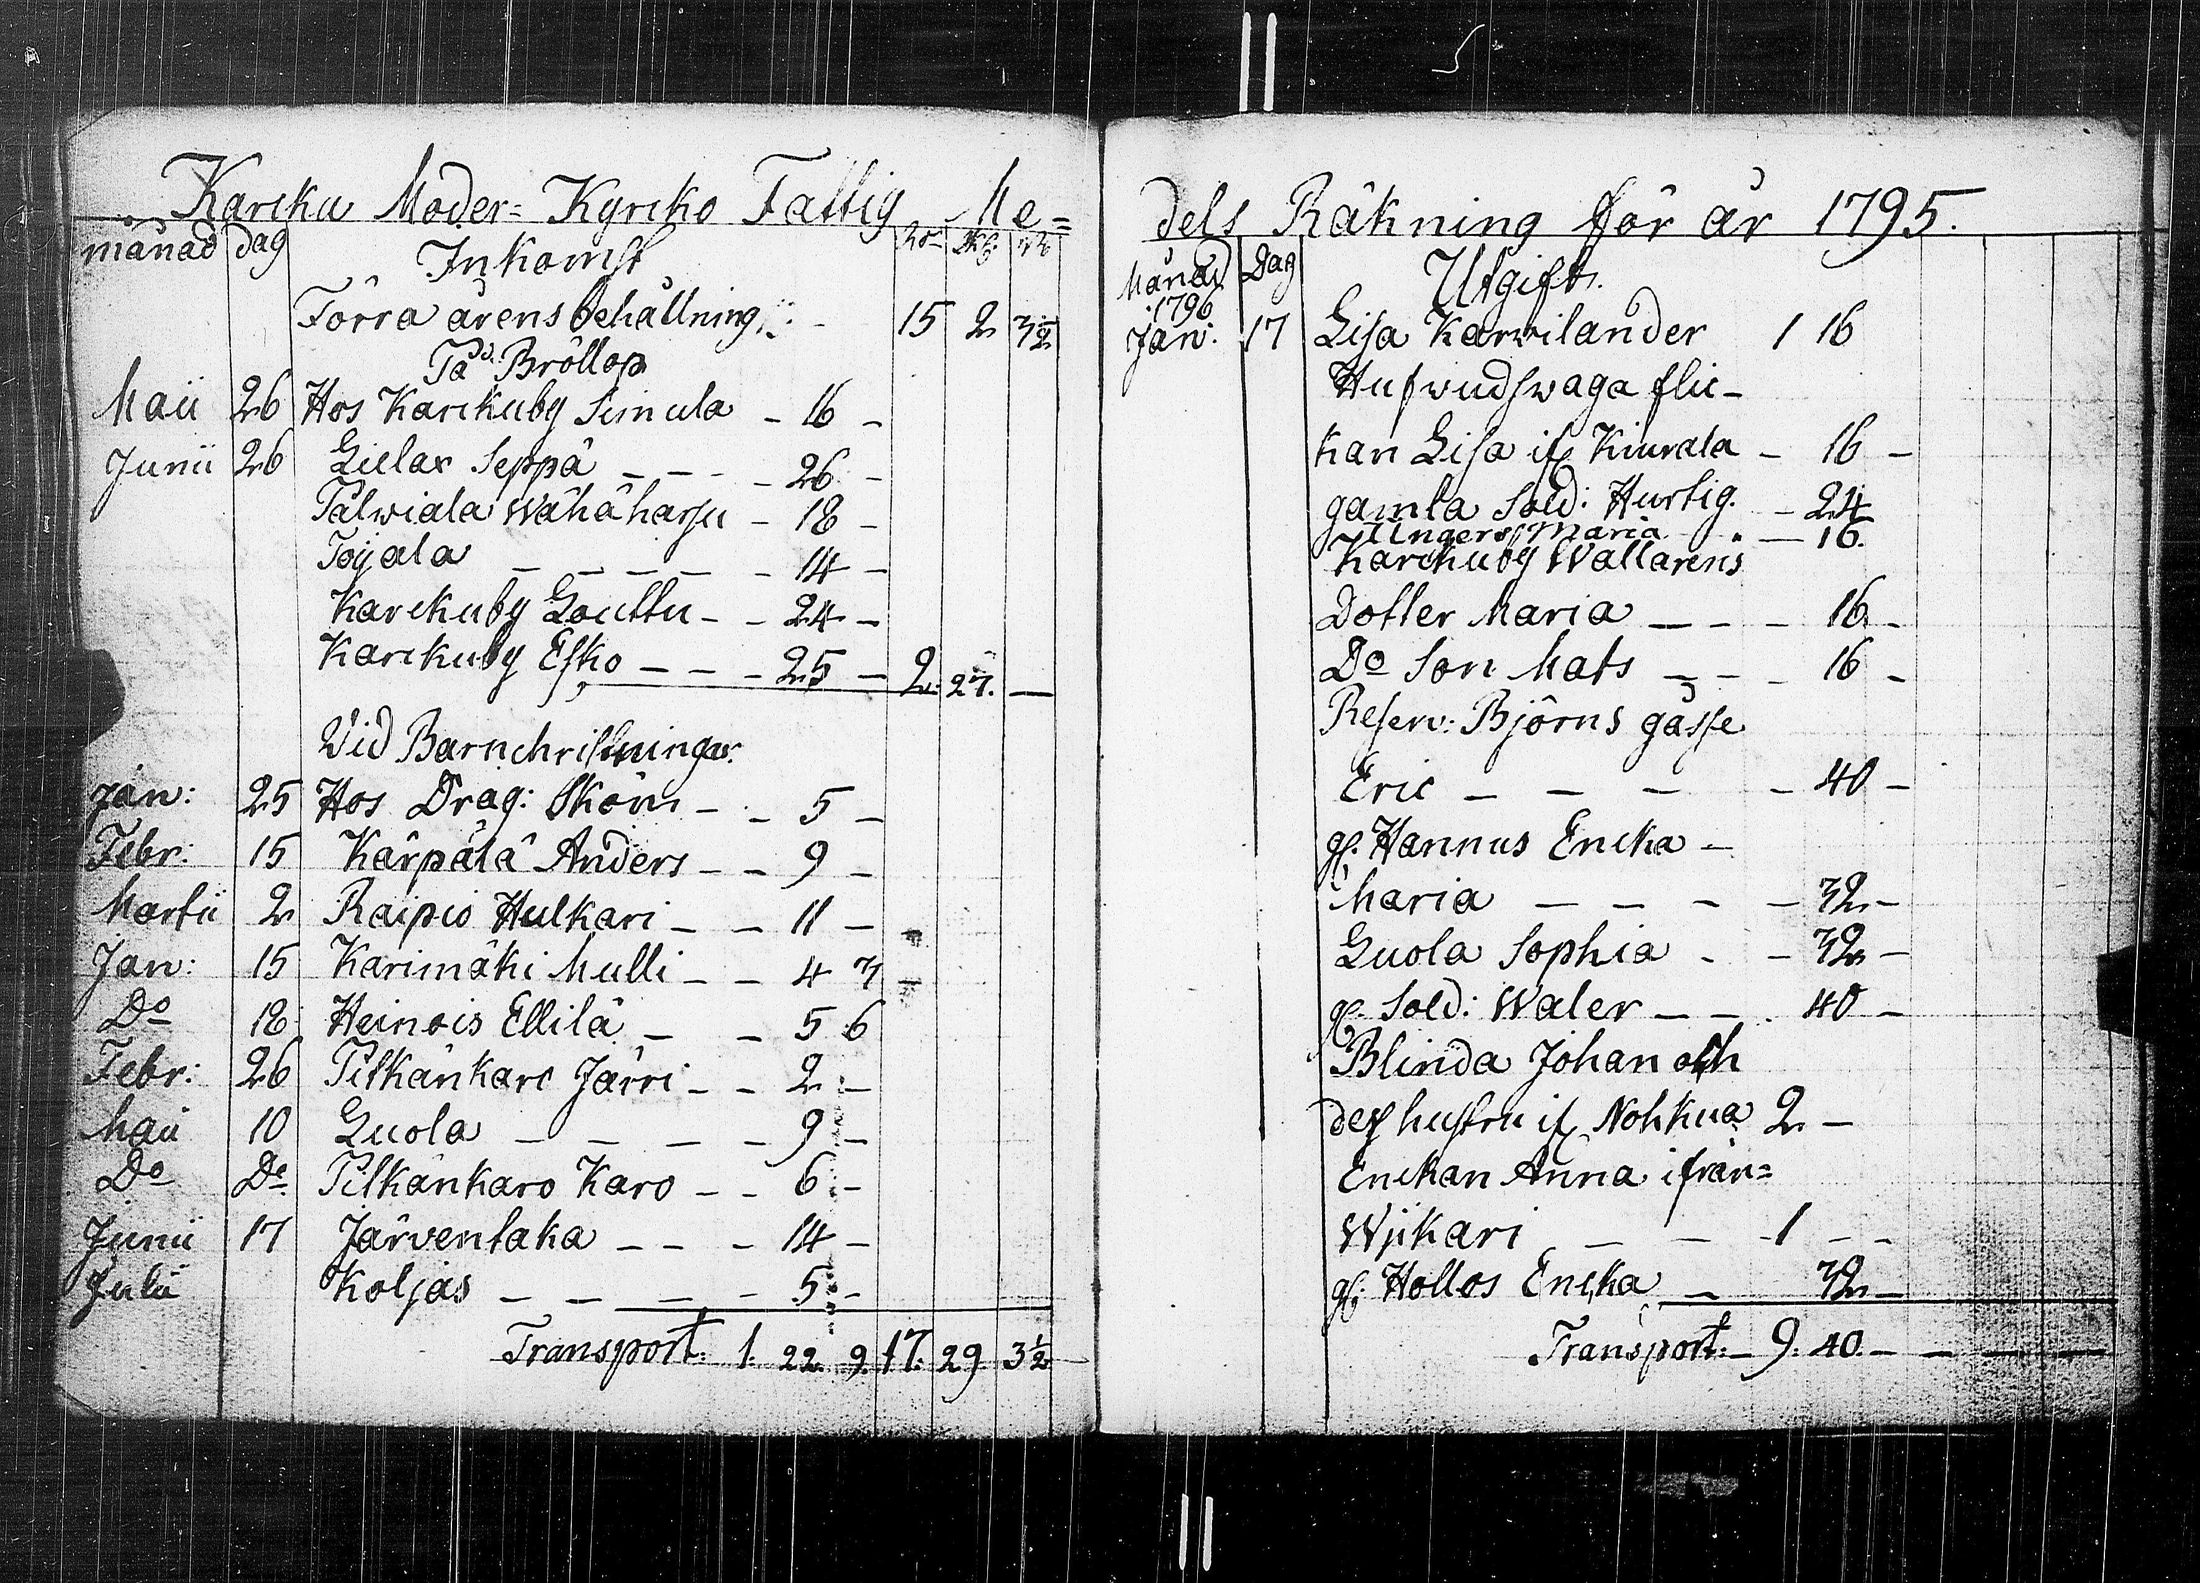 Karcku Moder= Kyrcko Fattig Me=
månad dag Inkomst Rdr Sk: rst
Förra årens behållning 15 2 3½
På Bröllop
Maii 26 Hos Karckuby Simula - 16 -
Junii 26 Gielax Seppä - - - 26 -
Palwiala Wähähasju - 18 -
Töijala - - - - - 14 -
Karckuby Gouttu - - 24 -
Karckuby Esko - - - 25 - 2. 27. -
Vid Barnchristningar.
Jan: 25 Hos Drag: Sköm - - 5 -
Febr: 15 Kärpälä Anders - - 9 -
Martii 2 Raipio Hulkari - - 11 -
Jan: 15 Karimäki Mulli - - 4 3
Do 18 Heinois Ellilä - - 5 6
Febr: 26 Pitkänkaro Järri - - 2 -
Maii 10 Guola - - - - 9 -
Do Do Pitkänkaro Karo - - 6 -
Junii 17 Järventaka - - - 14 -
Julii Koljas - - - - 5 -
Transport: 1. 22. 9. 17. 29. 3½
dels Räkning för år 1795.
Månad Dag Utgift.
1796
Jan: 17 Lisa Karvilander 1 16
Hufwudswaga flic-
kan Lisa if. Kiurala - 16 -
gamla Sold: Hurtig. - 24
Ungers Maria - 16.
Karckuby Wallarens
Dotter Maria - - - 16 -
Do Son Mats - - - 16 -
Reserv: Björns gåsse
Eric - - - - 40 -
gl. Hannus Encka -
Maria - - - - 32 -
Guola Sophia - - 32 -
gl. Sold: Waler - - 40 -
Blinda Johan och
des hustru if. Nohkua 2 -
Enckan Anna ifrån=
Wjikari - - 1 - -
gl: Hollos Encka - 32 -
Transport: - 9. 40. - - - -